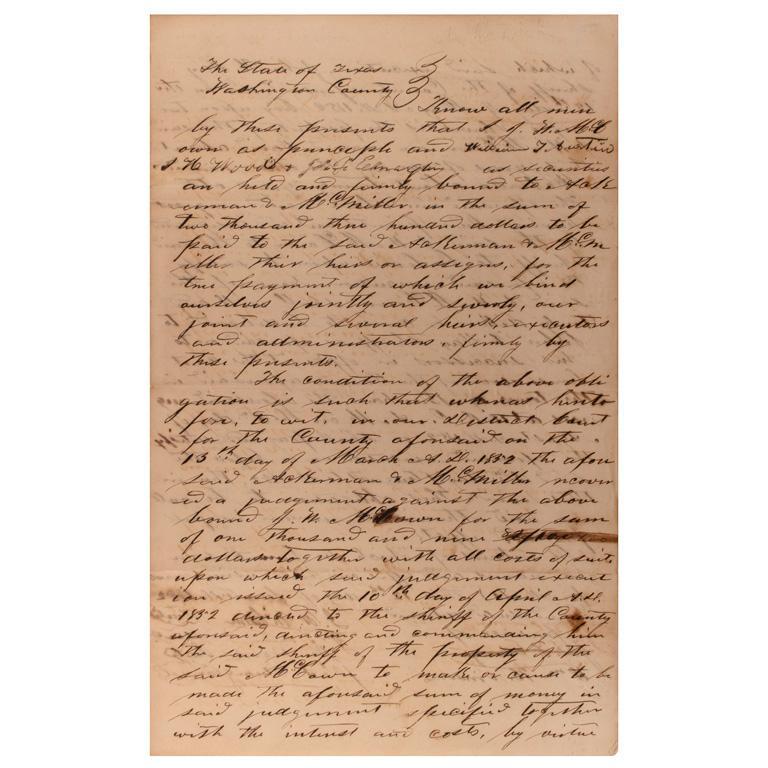 The State of Texas
Washington County
Know all men
by these presents that I J. W. McC
own as principle and William T. Austin
J. H. Wood & as securities
are held and firmly bound to Ack
erman & McMiller in the sum of
two thousand three hundred dollars to be
paid to the said Ackerman & McM
iller their heirs or assigns, for the
true payment of which we bind
ourselves jointly and severaly, our
joint and several heirs, executors
and administrators, firmly by
these presents.
The condition of the above obli
gation is such that whereas hereto
fore, to wit, in our District Court
for the County aforesaid on the
13th day of March A.D. 1852 the afore
said Ackerman & McMiller recover
ed a judgement against the above
bound J. W. McCown for the sum
of one thousand and nine
dollars together with all costs of suit
upon which said judgement execut
ion issued the 10th day of April A.D.
1852 directed to the sheriff of the County
aforesaid, directing and commanding him
the said sheriff of the property of the
said McCown to make or cause to be
made the aforesaid sum of money in
said judgement specified together
with the interest and costs, by virtue